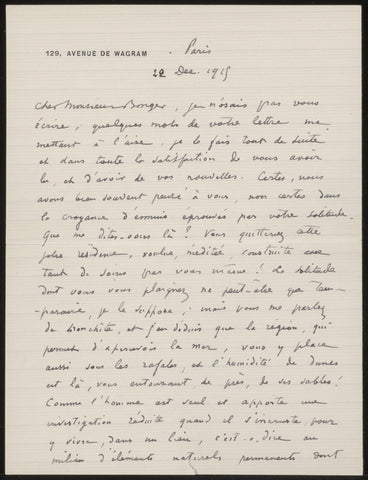 129, AVENUE DE WAGRAM . Paris
22 Dec. 1915
Cher Monsieur Bonger, je n'osais pas vous
écrire ; quelques mots de votre lettre me
mettant à l'aise, je le fais tout de suite
et dans toute la satisfaction de vous avoir
lu, et d'avoir de vos nouvelles. Certes, nous
avons bien souvent pensé à vous, non certes dans
la croyance d'ennuis éprouvés par votre solitude.
Que me dites-vous là ? Vous quitteriez cette
jolie résidence, voulue, méditée, construite avec
tant de soins par vous même ! La solitude
dont vous vous plaignez ne peut-être que tem-
-poraire, je le suppose ; mais vous me parlez
de bronchite, et j'en déduis que la région, qui
permet d'apercevoir la mer, vous y place
aussi sous les rafales, et l'humidité de dunes
est là, vous entourant de près, de ses sables !
Comme l'homme est seul et apporte une
investigation réduite quand il s'incruste pour
y vivre, dans un lieu, c'est-à-dire au
milieu d'éléments naturels permanents dont